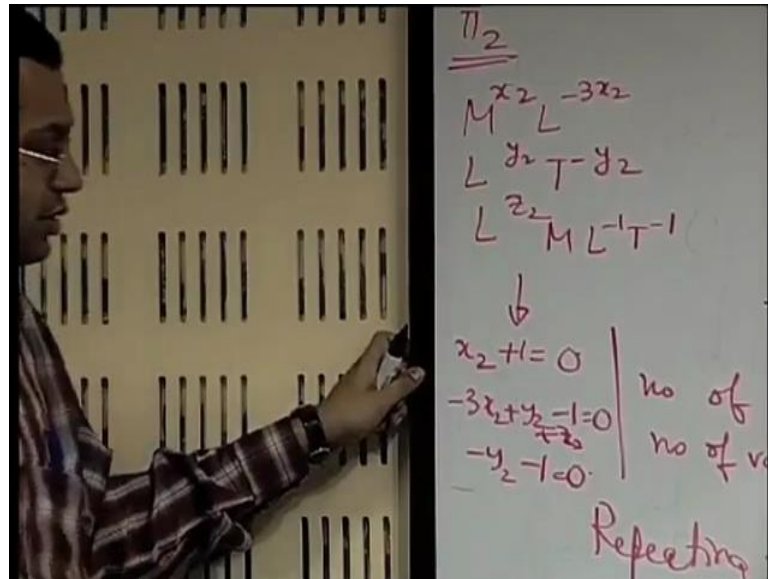 Π₂
M^x₂ L^-3x₂
L^y₂ T^-y₂
L^z₂ M L^-1 T^-1
↓
x₂ + 1 = 0
-3x₂ + y₂ - 1 = 0
+z₂
-y₂ - 1 = 0.
no of
no of
Repeating